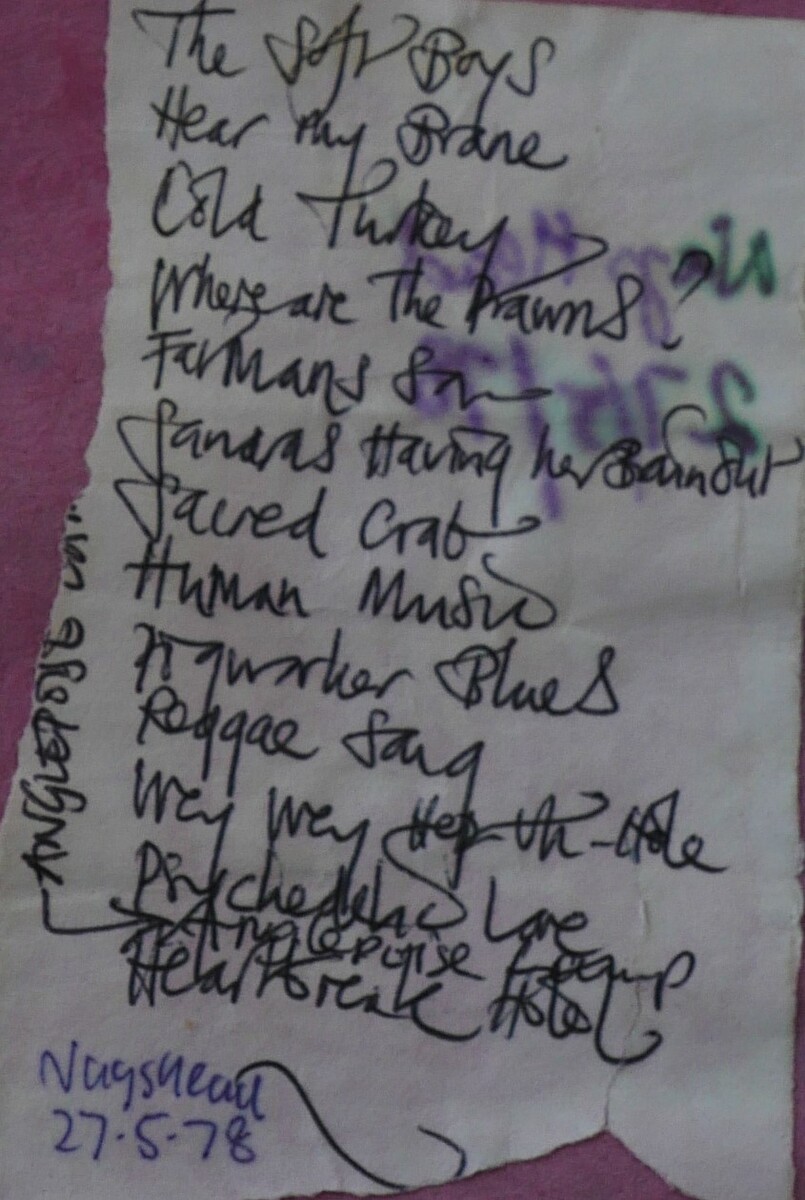 The Soft Boys
Hear my Brane
Cold Turkey
Where are The Prawns?
Farmans Son
Sandras Having her Brain Out
Sacred Crab
Human Music
Pigworker Blues
Reggae Song
Wey Wey Hep-Uh-Hole
Psychedelic Love
Anglepoise Lamp
Heartbreak Hotel
ANGLEPOISE
Nagshead
27.5.78